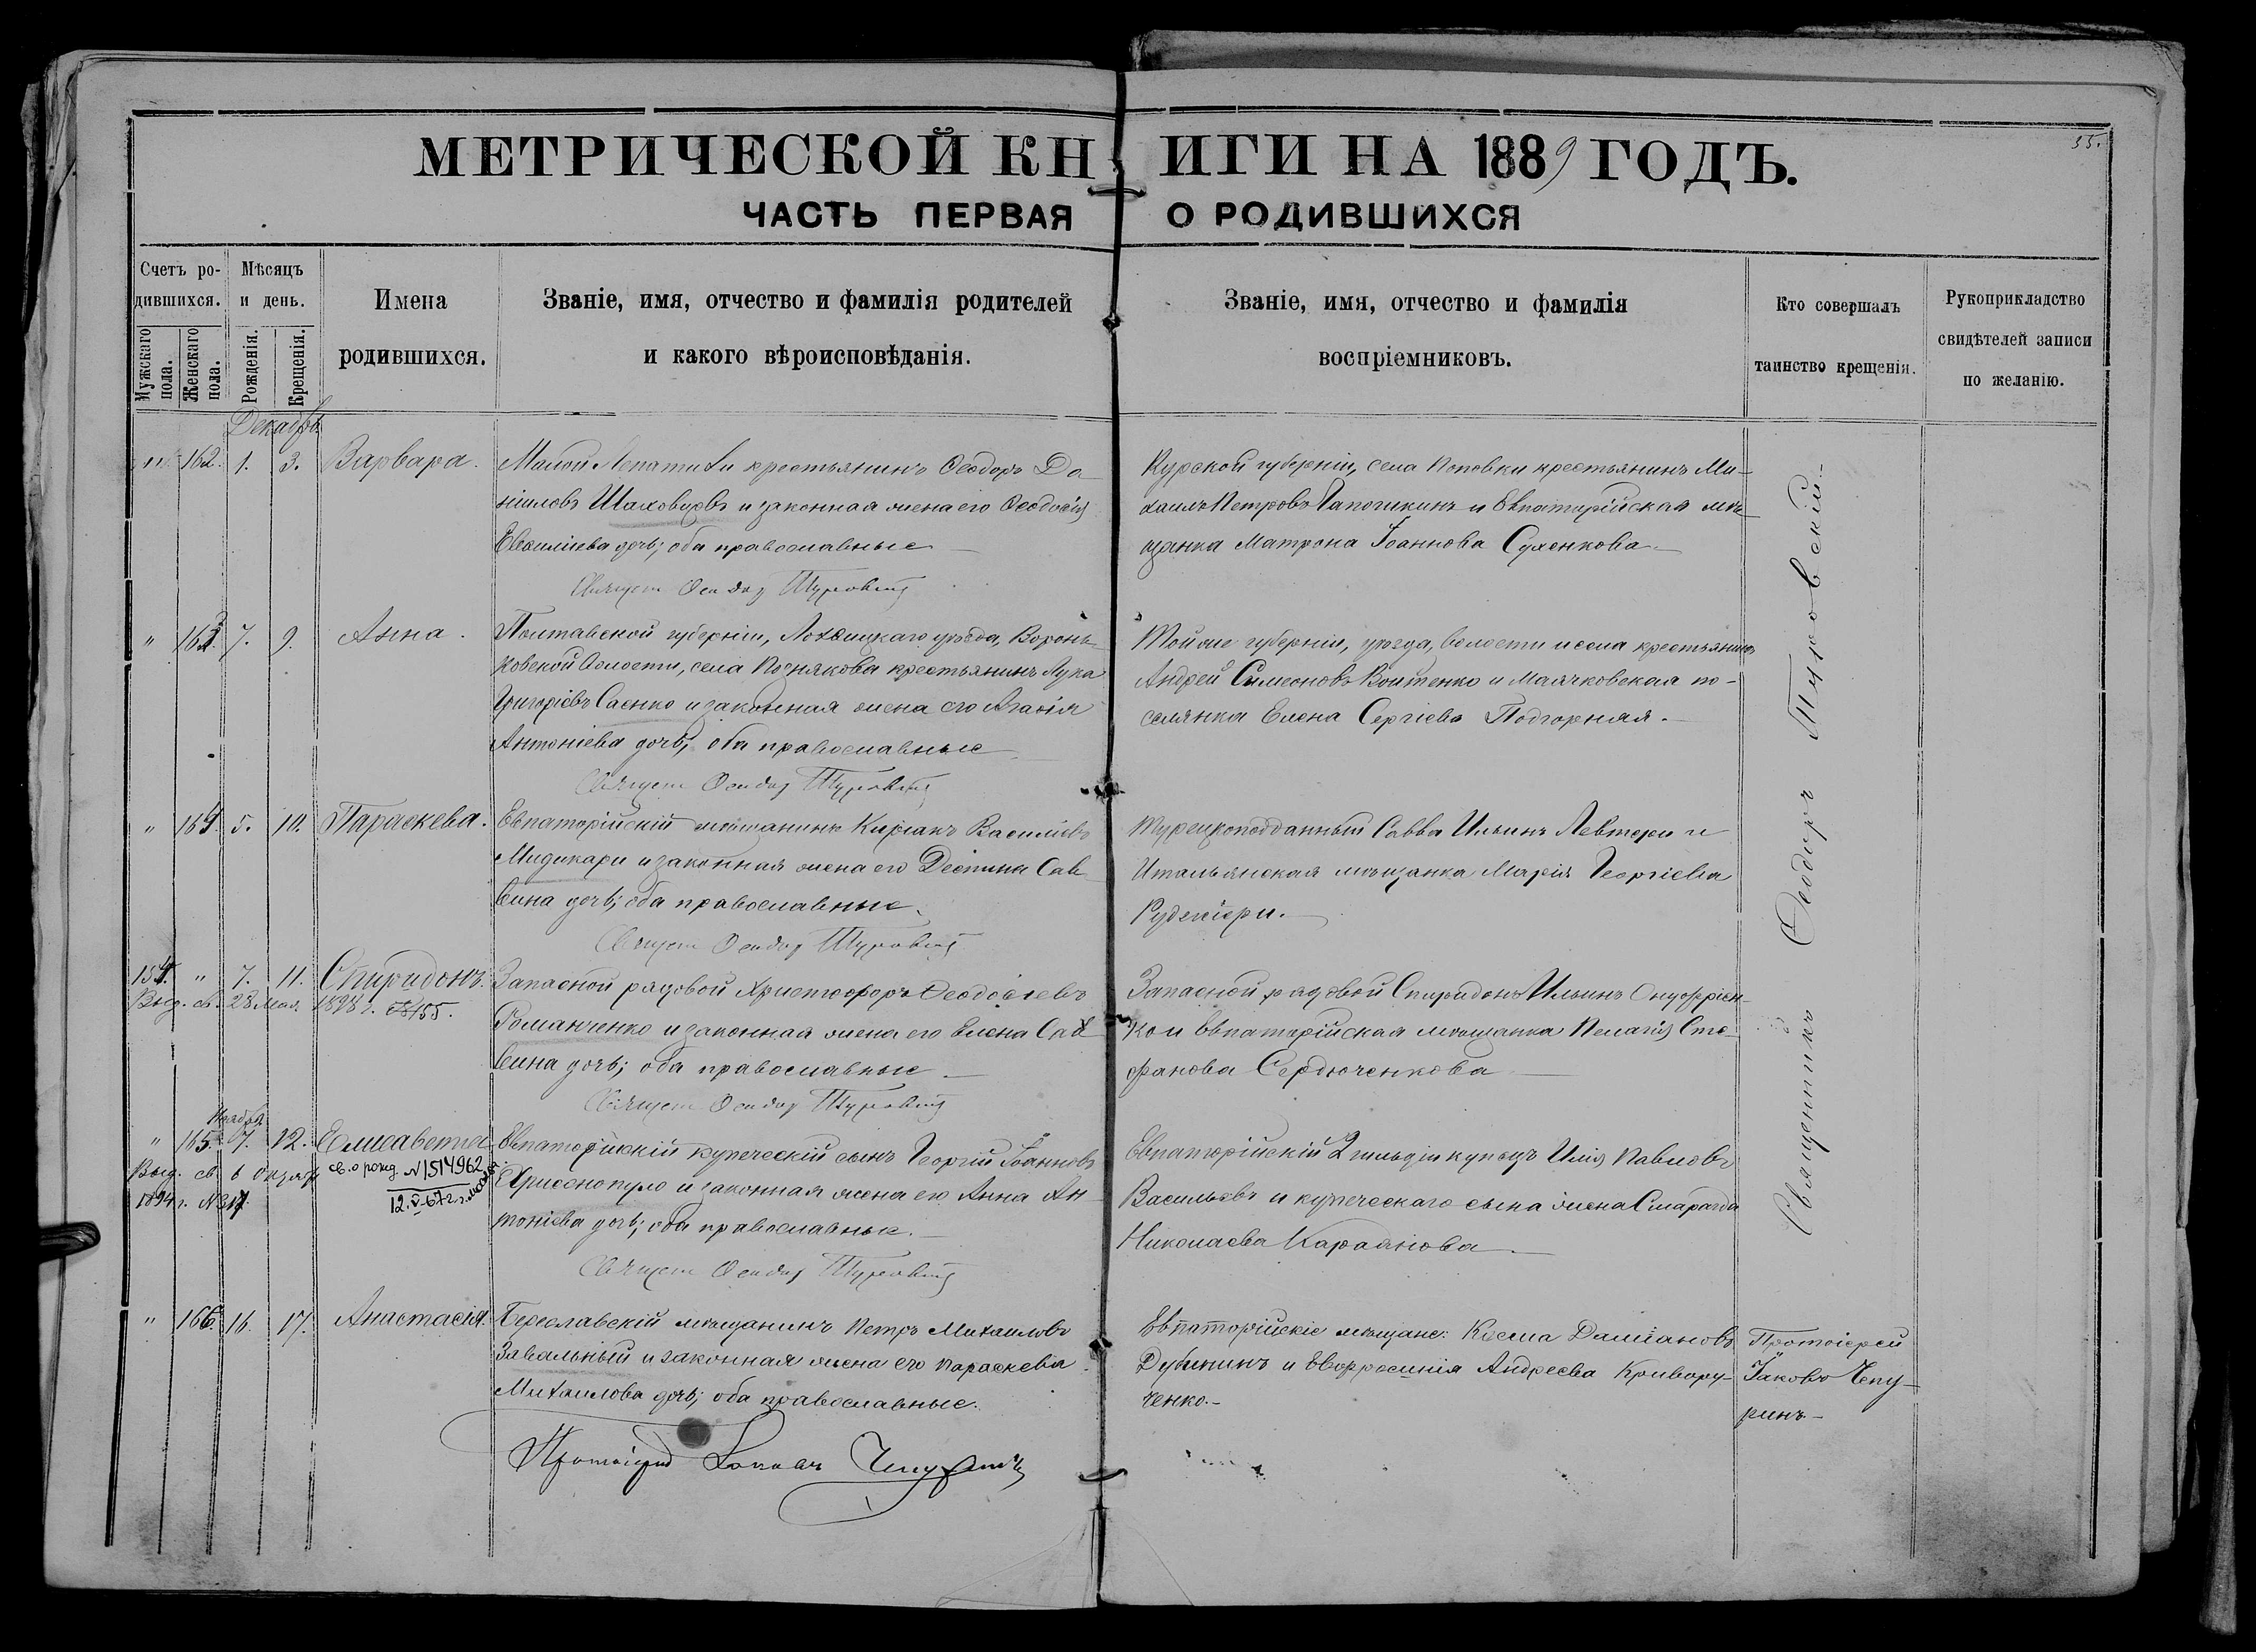 35.
МЕТРИЧЕСКОЙ КНИГИ НА 1889 ГОДЪ.
ЧАСТЬ ПЕРВАЯ О РОДИВШИХСЯ
Счетъ ро-
дившихся.
Мужскаго
пола.
Женскаго
пола.
Мѣсяцъ
и день.
Рожденія.
Крещенія.
Имена
родившихся.
Званіе, имя, отчество и фамилія родителей
и какого вѣроисповѣданія.
Званіе, имя, отчество и фамилія
воспріемниковъ.
Кто совершалъ
таинство крещенія.
Рукоприкладство
свидѣтелей записи
по желанію.
Декабрь
" 162. 1. 3. Варвара.
Малой Лепатихи крестьянинъ Ѳеодоръ Да-
ніиловъ Шаховцовъ и законная жена его Ѳеодосія
дочь; оба православные
Курской губерніи, села Поповки крестьянинъ Ми-
хаилъ Петровъ и Евпаторійская мѣ-
щанка Матрона Іоаннова Сухенкова.
" 163. 7. 9. Анна.
Полтавской губерніи, Лохвицкаго уѣзда, Воронь-
ковской волости, села Позднякова крестьянинъ Лука
Григоріевъ Саенко и законная жена его Агафія
Антоніева дочь; оба православные
Той же губерніи, уѣзда, волости и села крестьянинъ
Андрей Симеоновъ Войтенко и Маячковская по-
селянка Елена Сергіева Подгорная.
" 164. 5. 10. Параскева.
Евпаторійскій мѣщанинъ Киріакъ Василіевъ
Мидикари и законная жена его Деспина Сав-
вина дочь; оба православные.
Турецкоподданный Савва Ильинъ Левтери и
Итальянская мѣщанка Марія Георгіева
154. " 7. 11. Спиридонъ.
Выд. св. 28 Мая 1898 г. №155.
Запасной рядовой Христофоръ Ѳеодосіевъ
Романченко и законная жена его Елена Сав-
вина дочь; оба православные
Запасной рядовой Спиридонъ Ильинъ Онуфріен-
ко и Евпаторійская мѣщанка Пелагія Сте-
фанова Сердюченкова
Ноября
" 165. 7. 12. Елисавета
Выд. св. 6 Октяб.
1894 г. №317.
св. о рожд. N 1514962
12.V-67 г. г. Москва
Евпаторійскій купеческій сынъ Георгій Іоанновъ
Хрисопуло и законная жена его Анна Ан-
тоніева дочь; оба православные.
Евпаторійскій 2 гильдіи купецъ Илія Павловъ
Васильевъ и купеческаго сына жена Смарагда
Николаева Караянова
Священникъ Ѳеодоръ Туровскій.
" 166. 16. 17. Анастасія.
Береславскій мѣщанинъ Петръ Михаиловъ
Завальный и законная жена его Параскева
Михаилова дочь; оба православные.
Евпаторійскіе мѣщане: Косма Даміановъ
Дубининъ и Евфросинія Андреева Кривору-
ченко.
Протоіерей
Іаковъ Чепу-
ринъ
Протоіерей Іаковъ Чепуринъ